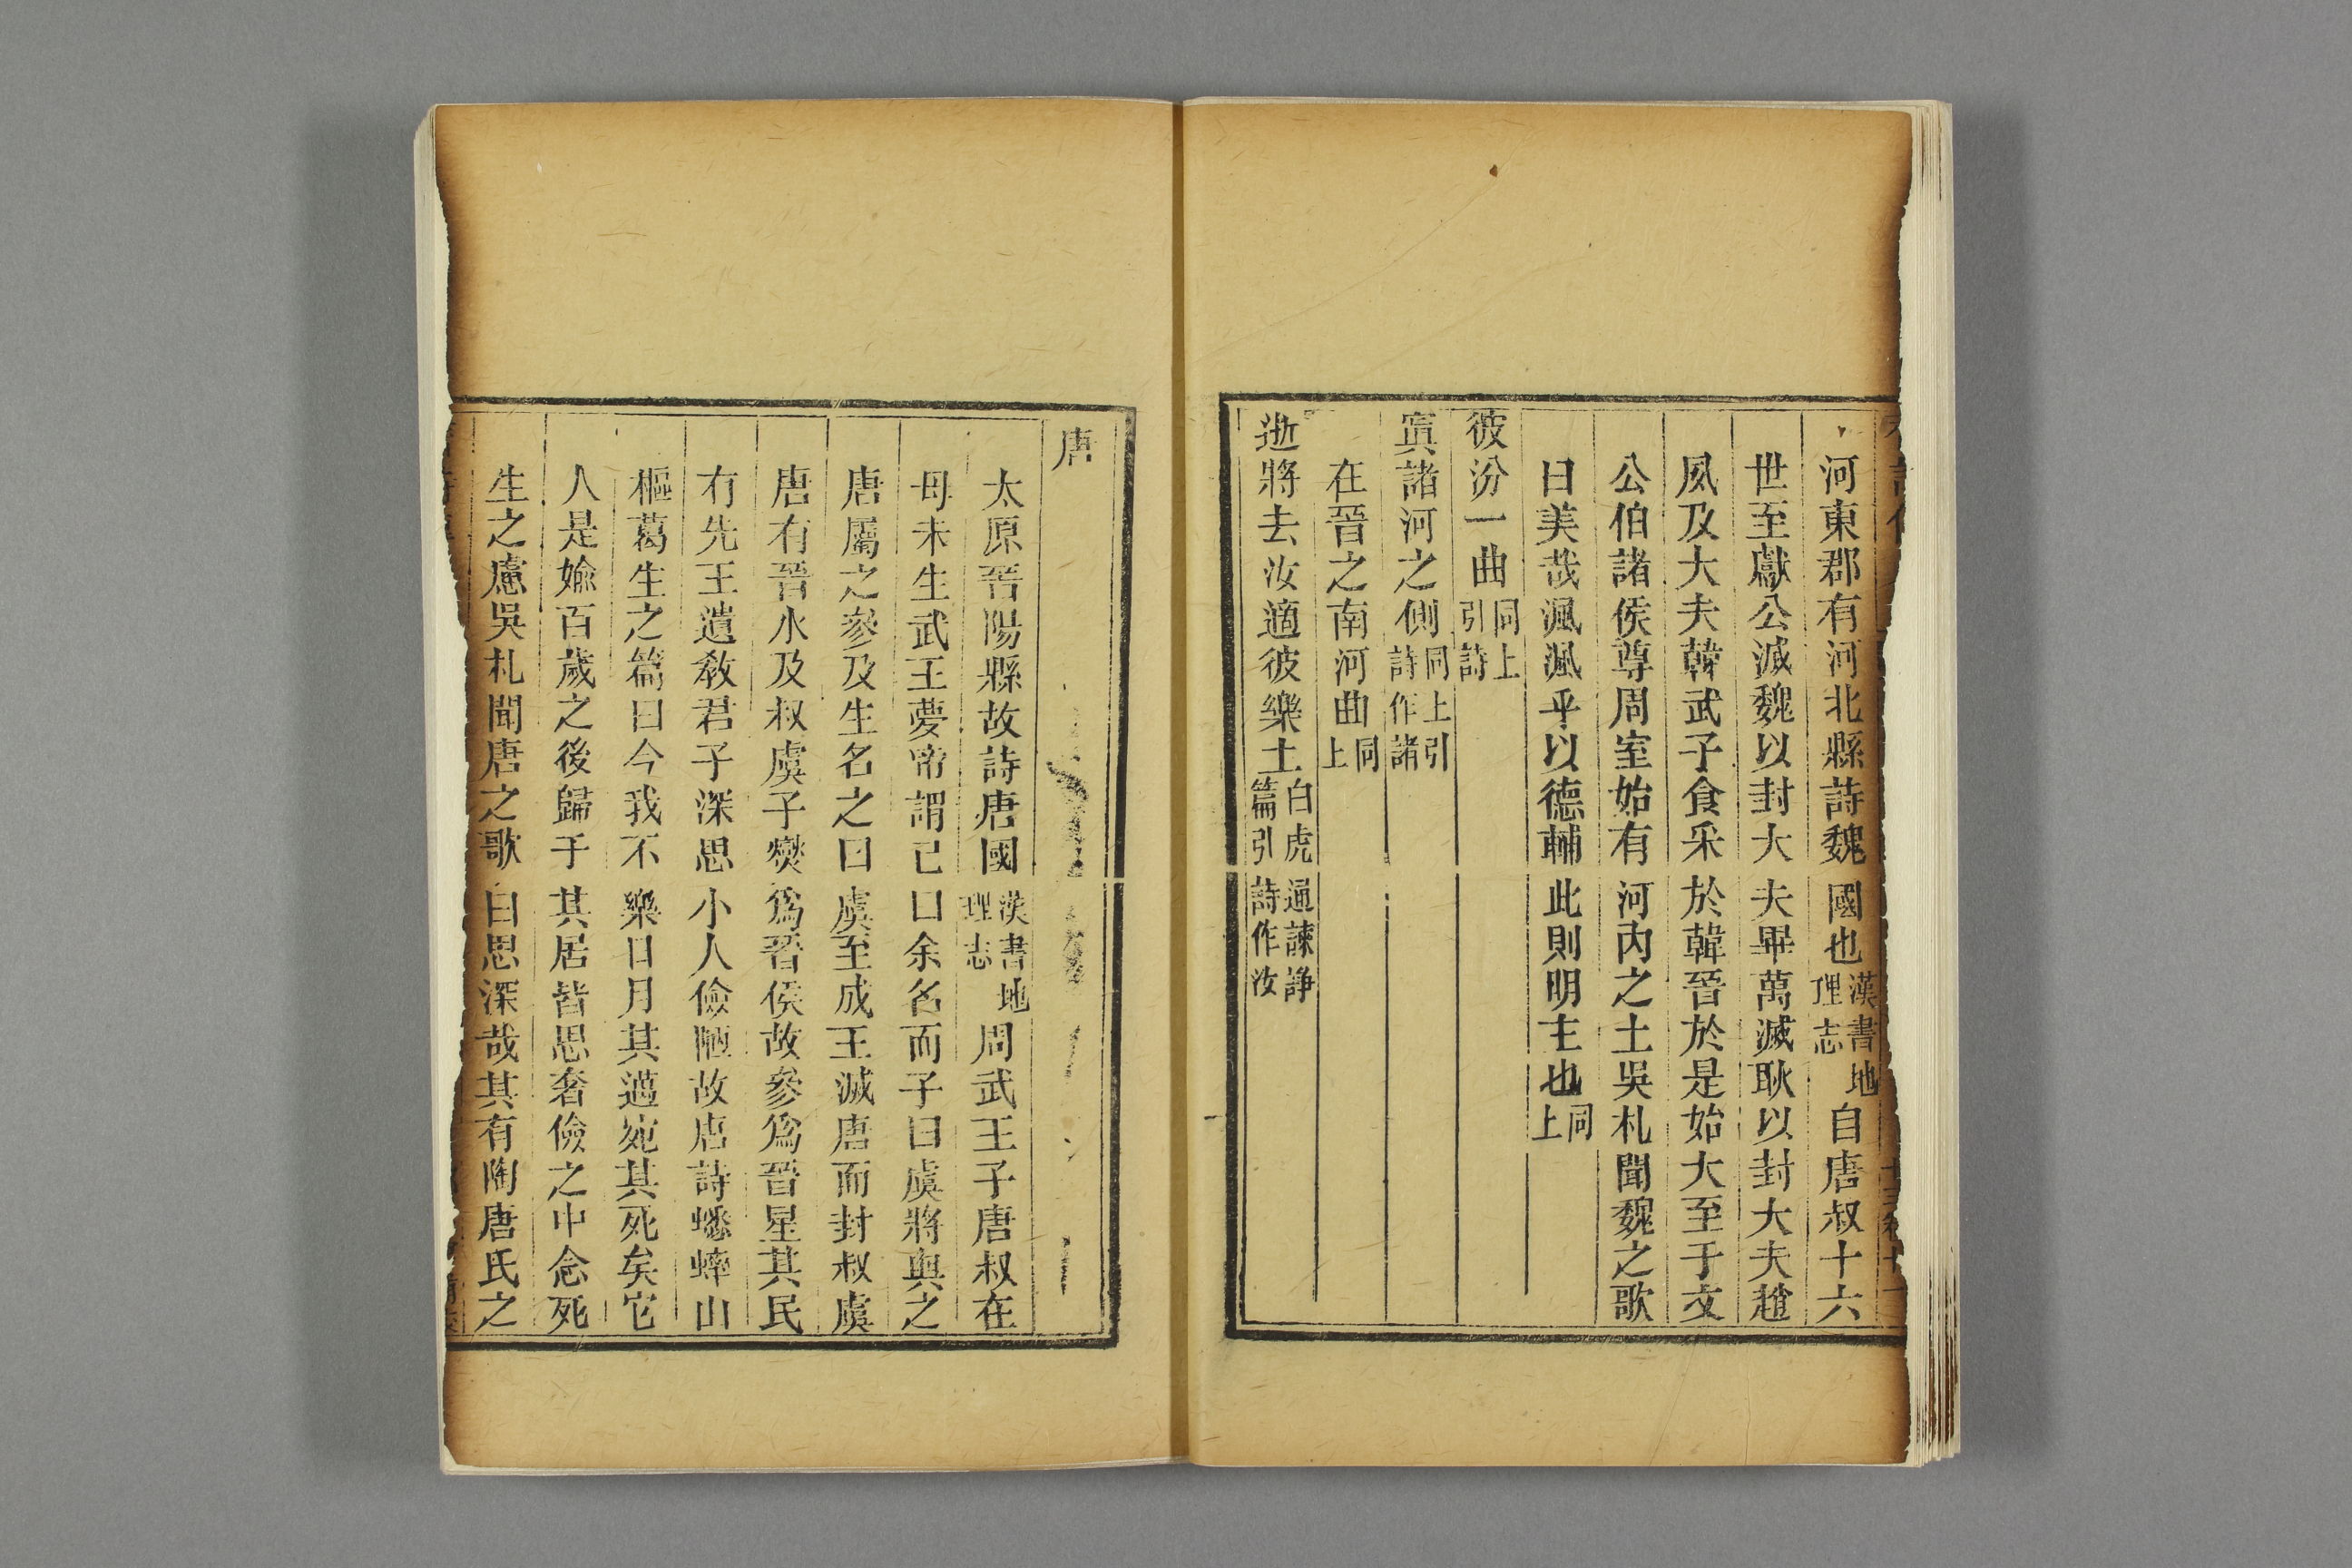 河東郡有河北縣詩魏國也漢書地理志自唐叔十六
世至獻公滅魏以封大夫畢萬滅耿以封大夫趙
夙及大夫韓武子食采於韓晉於是始大至于文
公伯諸侯尊周室始有河內之土吳札聞魏之歌
曰美哉渢渢乎以德輔此則明主也同上
彼汾一曲同上引詩
寘諸河之側同上引詩作諸
在晉之南河曲同上
逝將去汝適彼樂土白虎通諫諍篇引詩作汝
唐
太原晉陽縣故詩唐國漢書地理志周武王子唐叔在
母未生武王夢帝謂己曰余名而子曰虞將與之
唐屬之參及生名之曰虞至成王滅唐而封叔虞
唐有晉水及叔虞子燮爲晉侯故參爲晉星其民
有先王遺敎君子深思小人儉陋故唐詩蟋蟀山
樞葛生之篇曰今我不樂日月其邁宛其死矣它
人是媮百歲之後歸于其居皆思奢儉之中念死
生之慮吳札聞唐之歌曰思深哉其有陶唐氏之